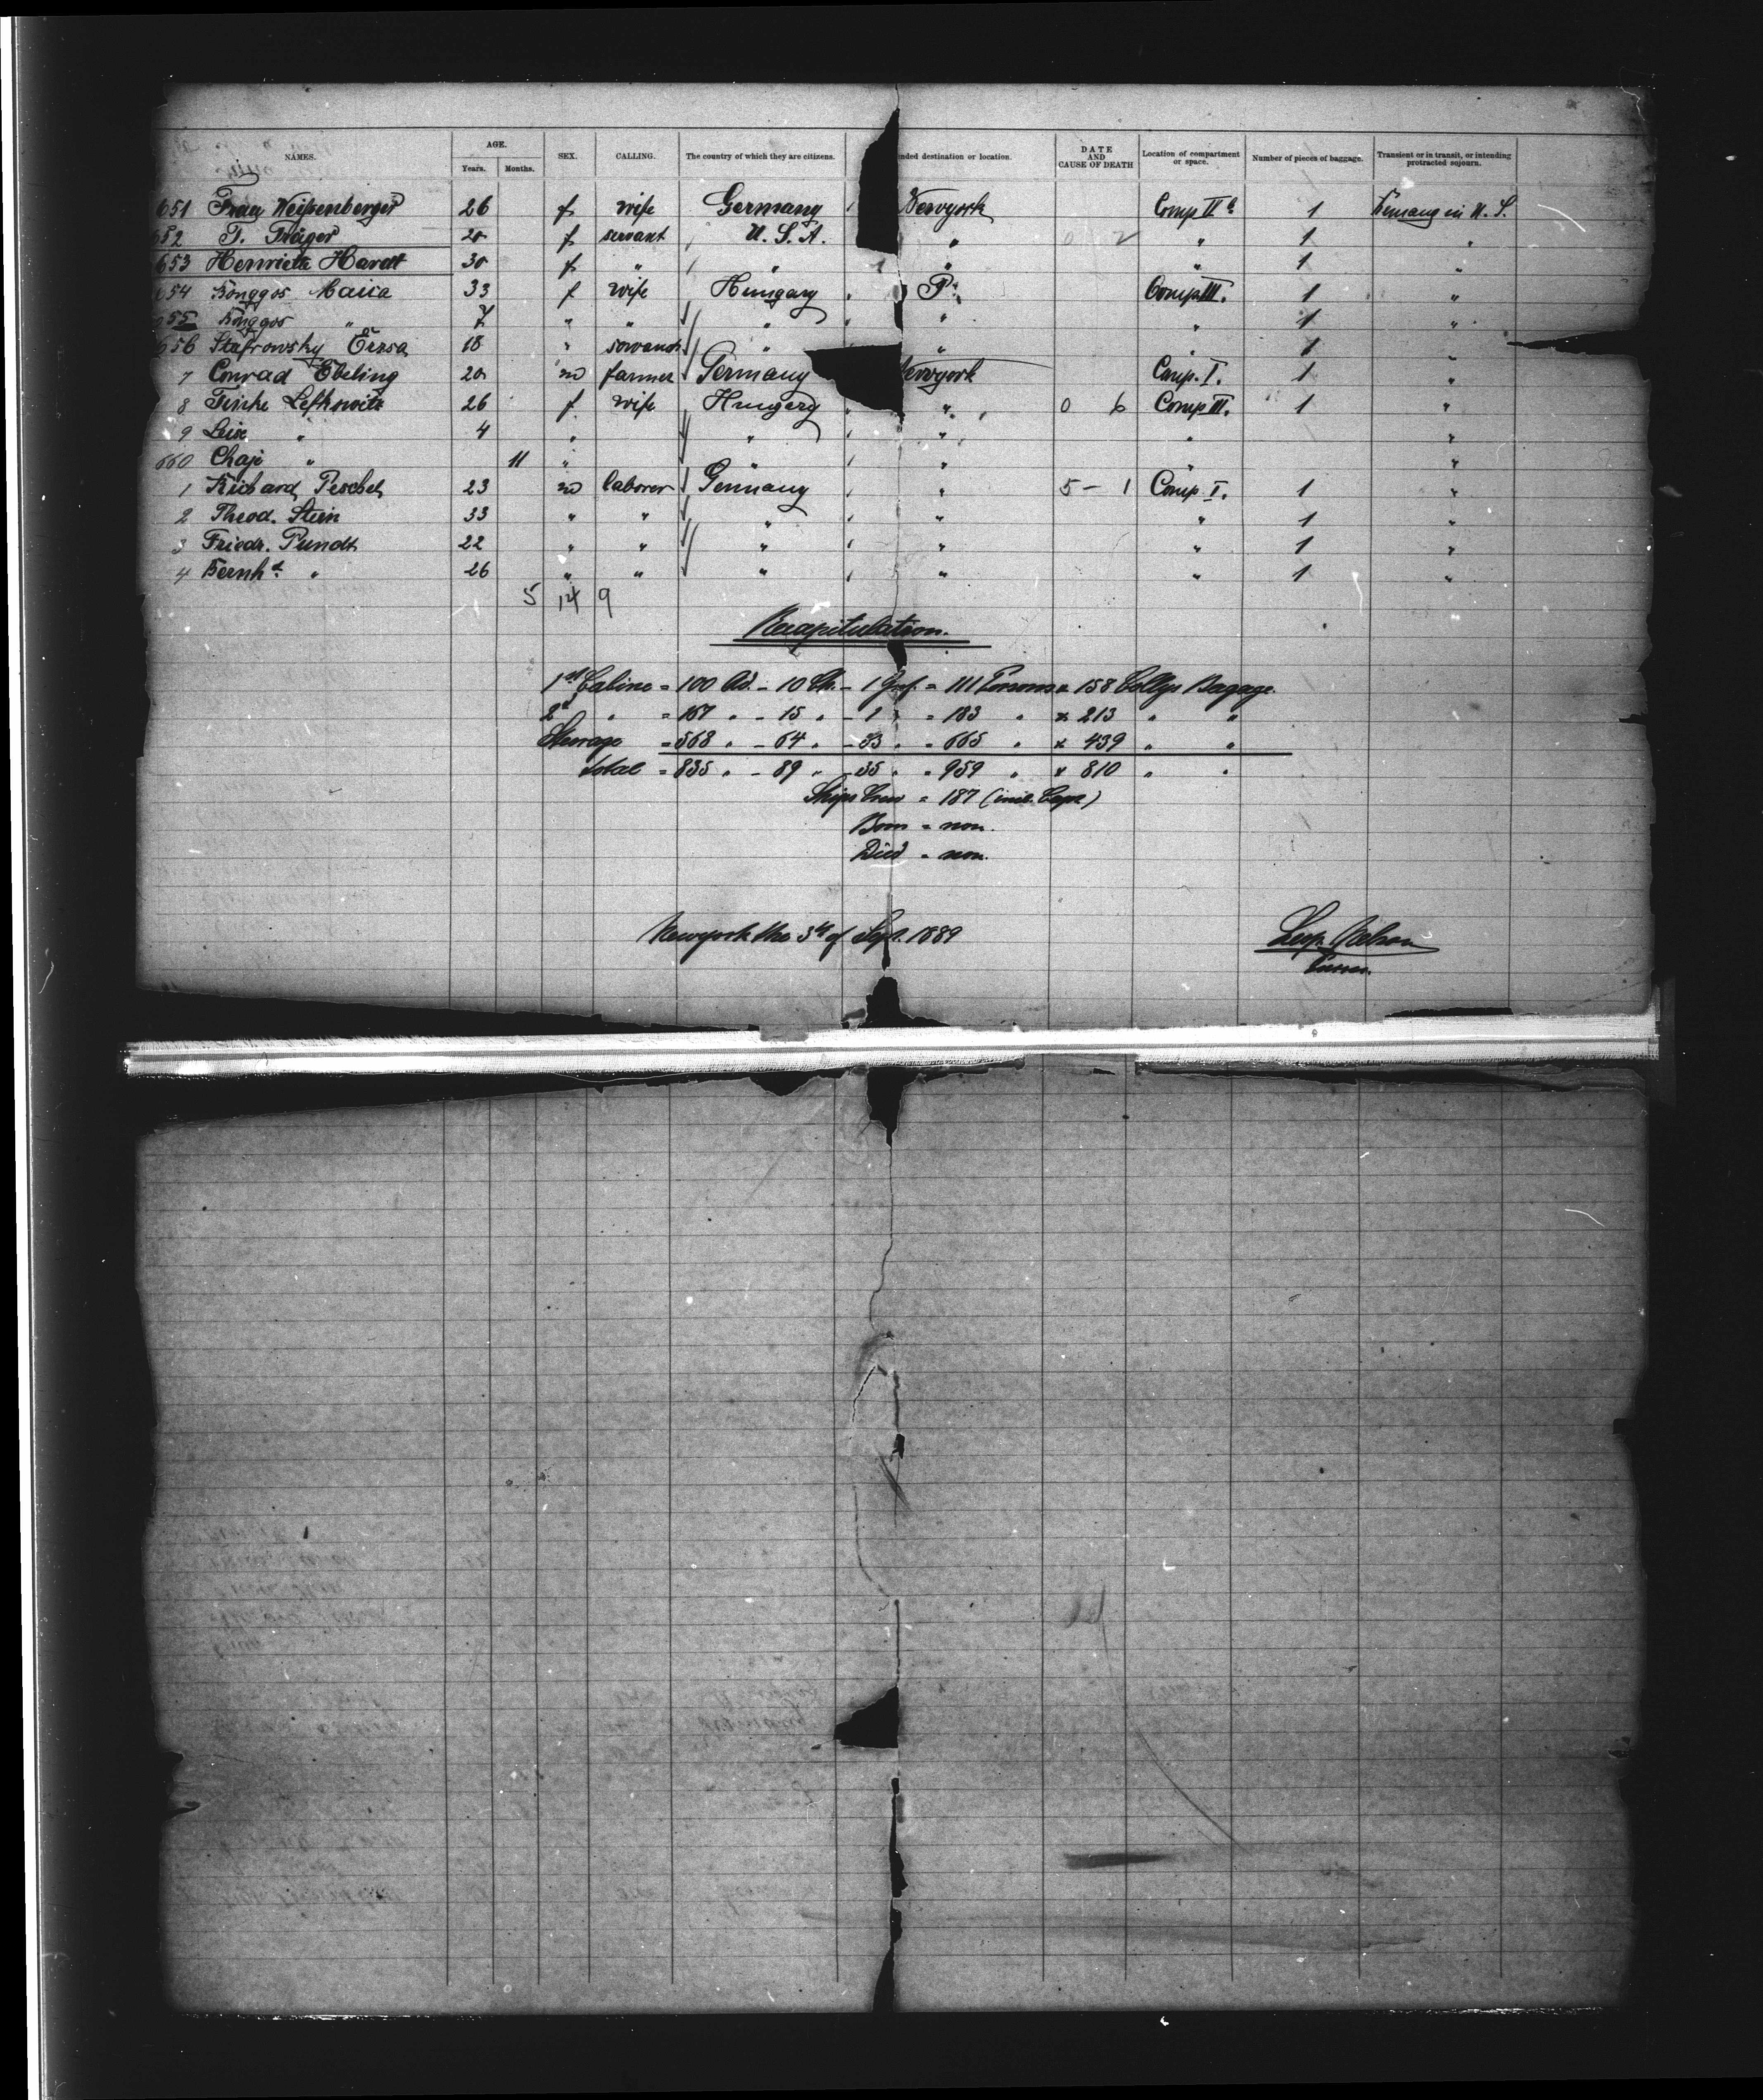 NAMES. AGE. SEX. CALLING. The country of which they are citizens. nded destination or location. DATE AND CAUSE OF DEATH Location of compartment or space. Number of pieces of baggage. Transient or in transit, or intending protracted sojourn.
Years. Months.
651 Frau Weißenberger 26 f wife Germany Newyork Comp II 1 in U. S.
652 T. Träger 20 f servant U. S. A. " 0 2 " 1 "
653 Henriette Hardt 30 f " " " " 1 "
654 Maria 33 f wife Hungary P. Comp III. 1 "
655 " 7 " " " " " 1 "
656 Erzsa 18 " " " " 1 "
7 Conrad Ebeling 20 m farmer Germany Newyork Comp. I. 1 "
8 Lefkowitz 26 f wife Hungary " 0 6 Comp III. 1 "
9 " 4 " " " " "
660 Chaje " 11 " " " " "
1 Richard Peschel 23 m laborer Germany " 5 - 1 Comp I. 1 "
2 Theod. Stein 33 " " " " " 1 "
3 Friedr. Pundt 22 " " " " " 1 "
4 Bernhd. " 26 " " " " " 1 "
5 14 9
Recapitulation.
1st Cabine = 100 Ad. - 10 Ch. - 1 Inf. = 111 Persons & 158 Collys Bagage.
2d " = 167 " - 15 " - 1 " = 183 " & 213 " "
Steerage = 568 " - 64 " - 33 " = 665 " & 439 " "
total = 835 " - 89 " - 35 " = 959 " & 810 " "
Ships Crew = 187 (incl. Capt.)
Born = non.
Died = non.
Newyork the 3d of Sept. 1889